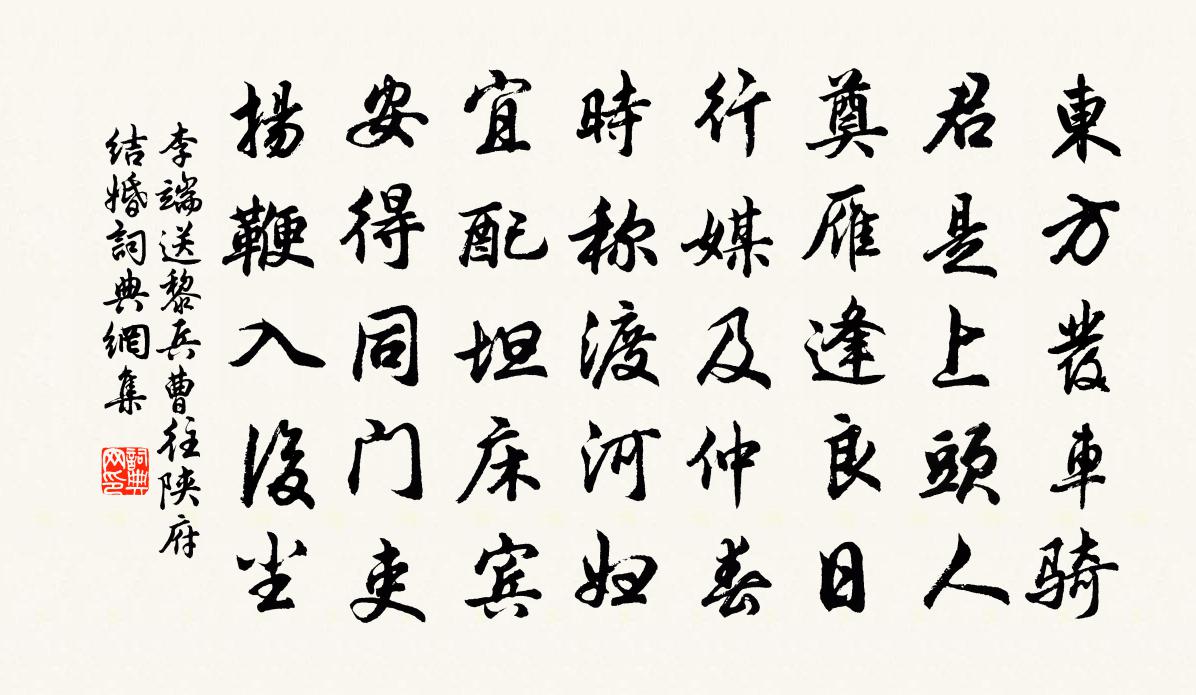 東方發車骑
君是上頭人
奠雁逢良日
行媒及仲春
時称渡河妇
宜配坦床宾
安得同门吏
揚鞭入後尘
李端送黎兵曹往陕府
結婚詞典網集
詞典网印